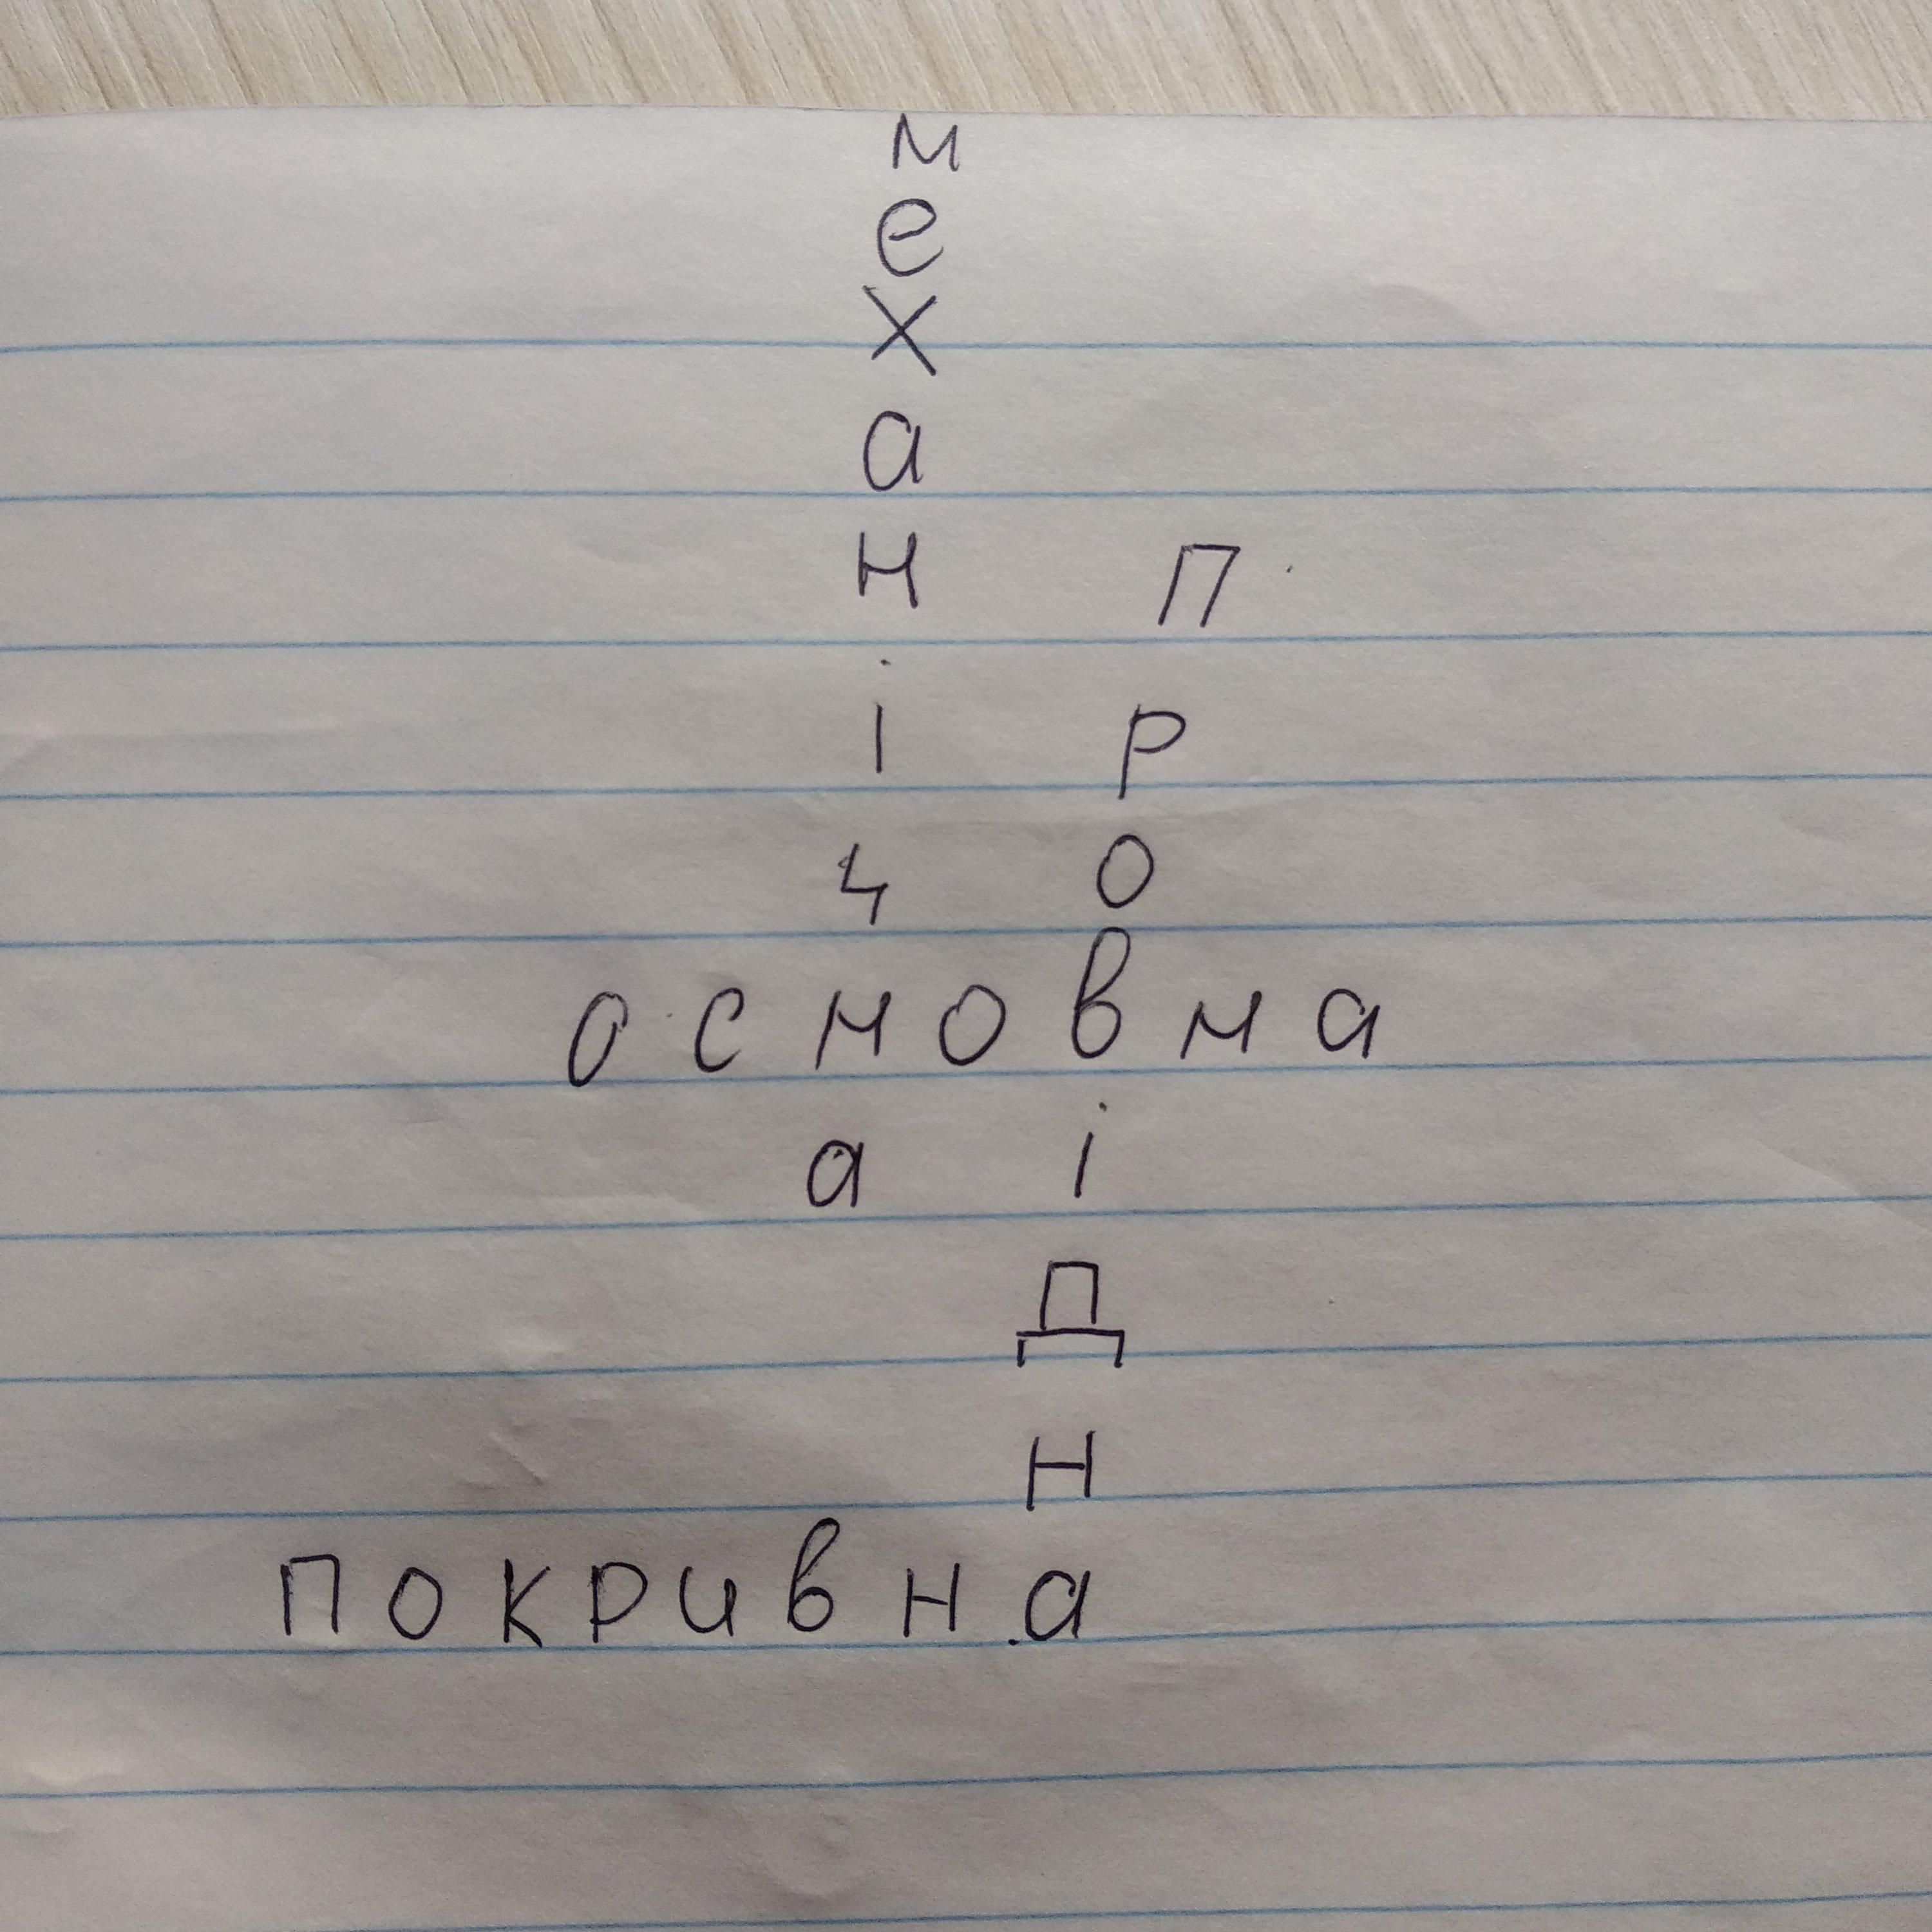 м
е
х
а
н П
і р
ч о
основна
а і
Д
н
покривна